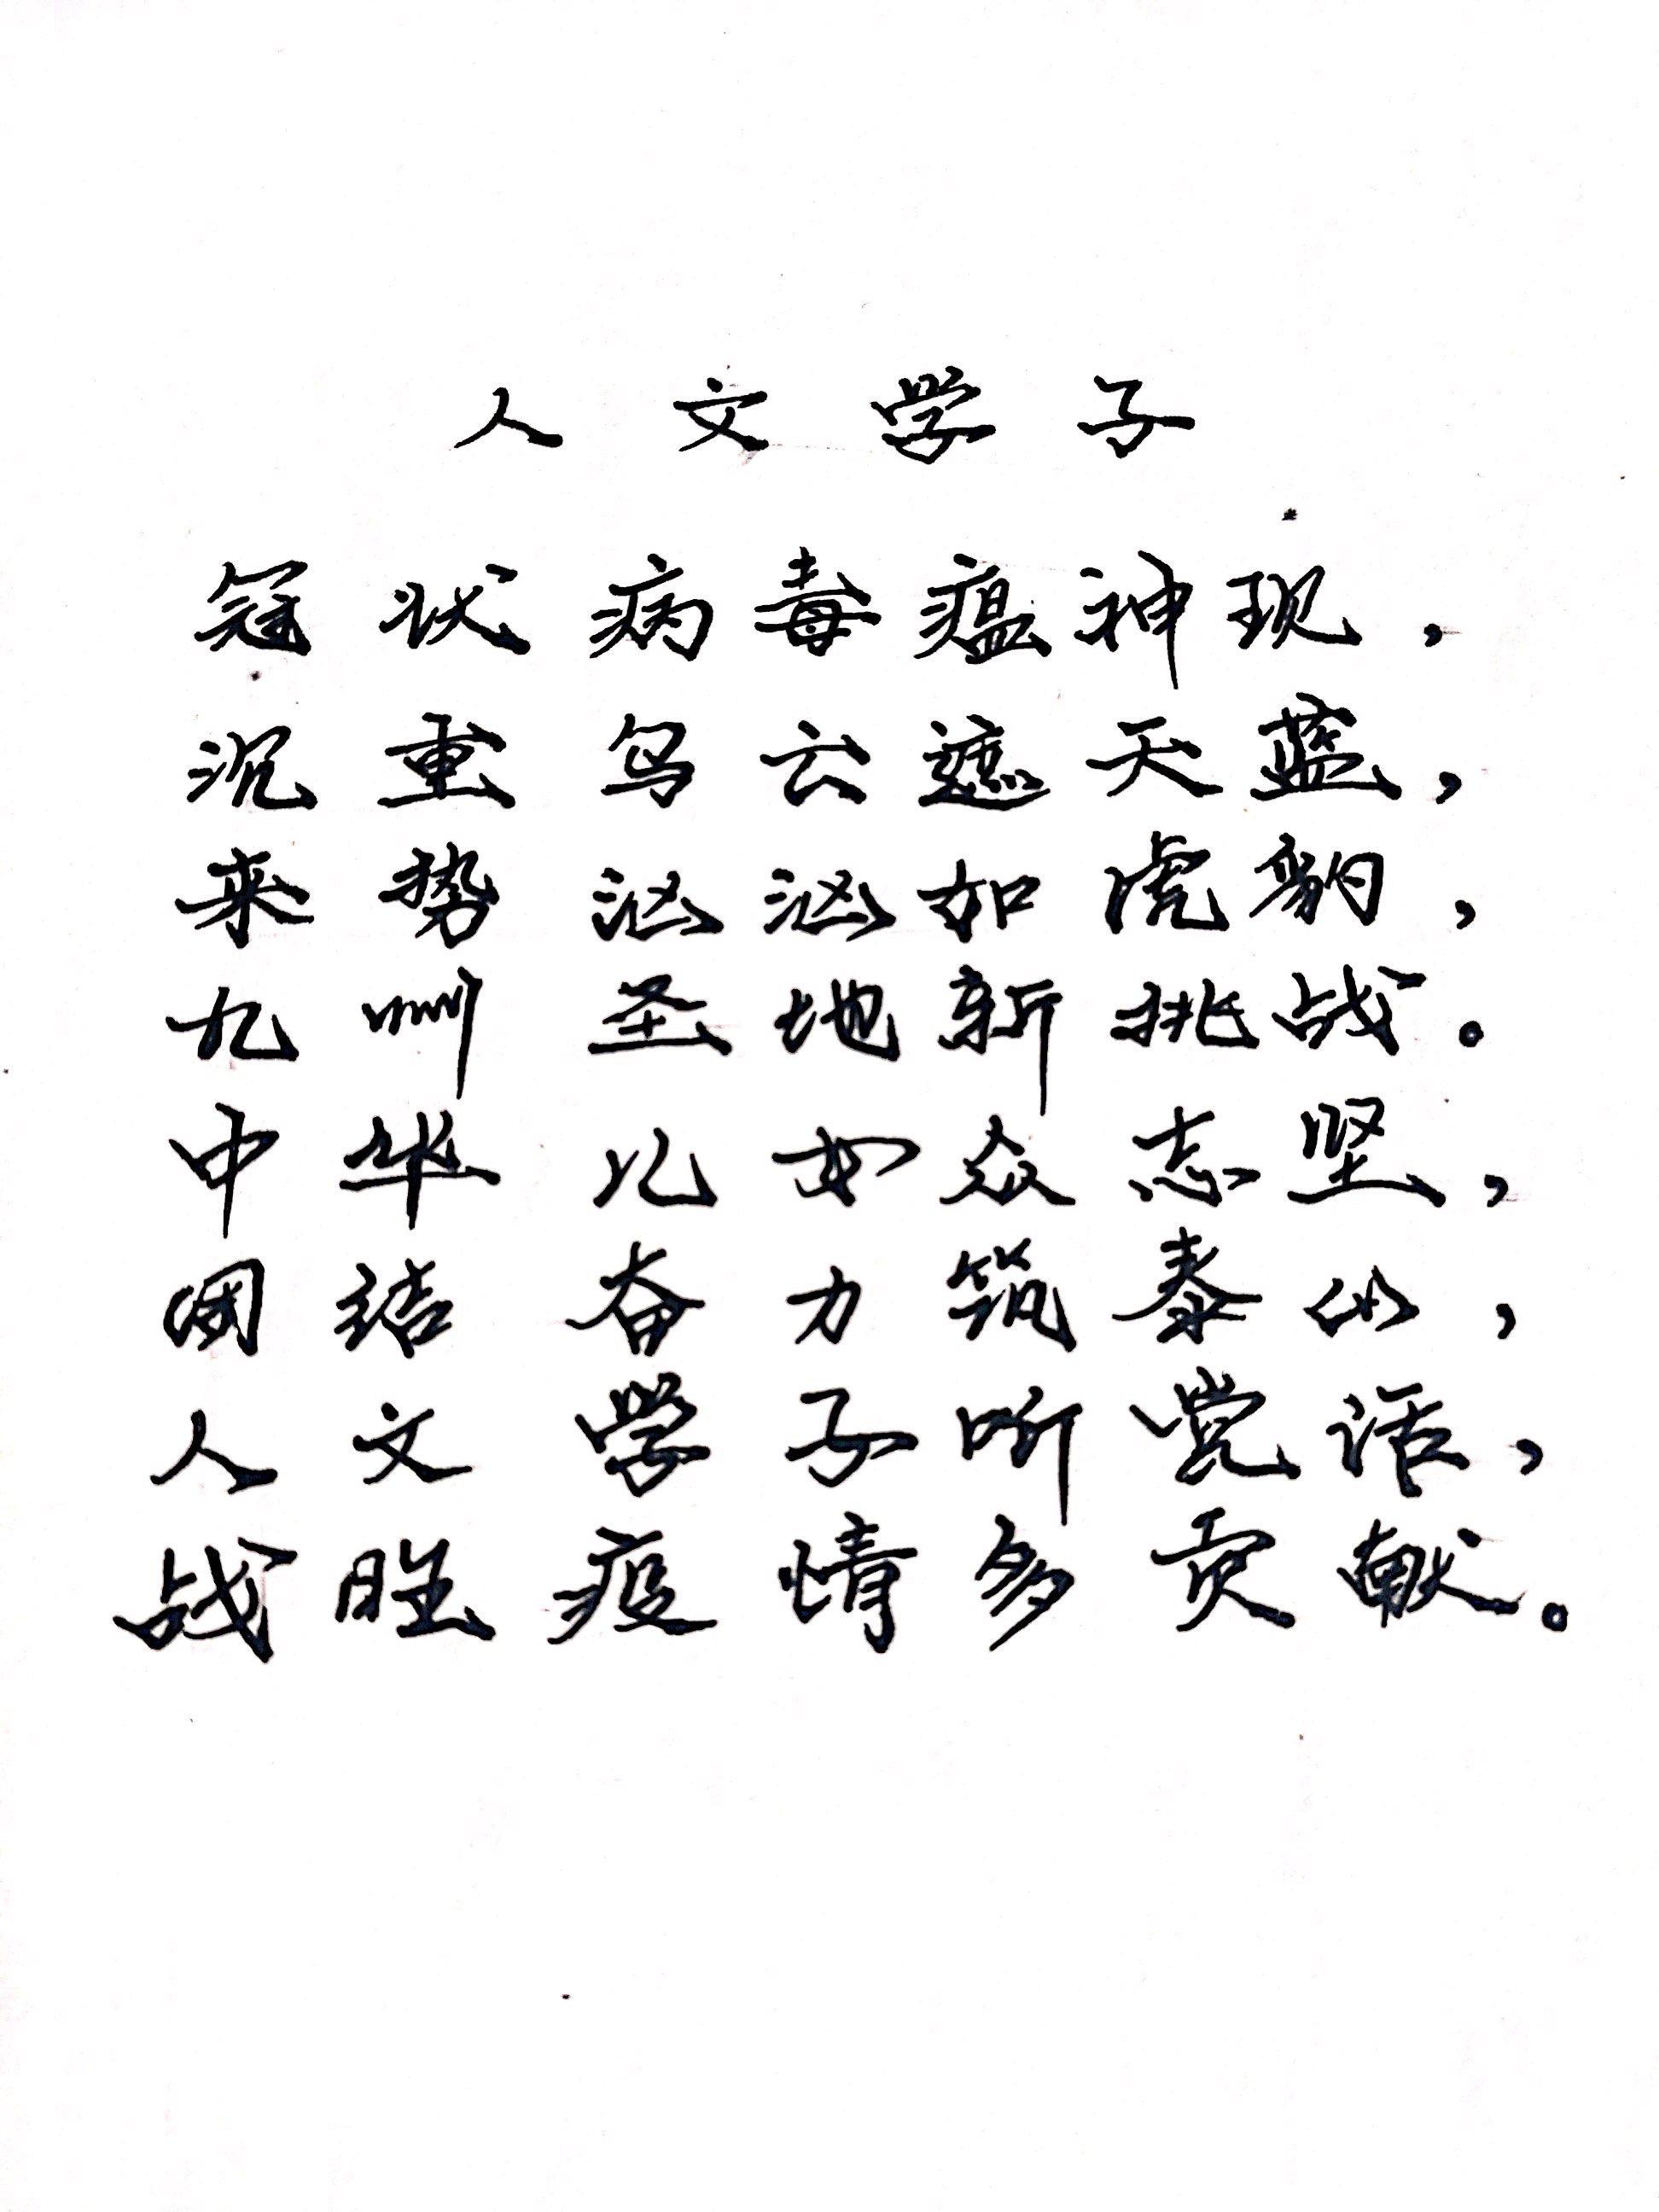 人文学子
冠状病毒瘟神现，
沉重乌云遮天蓝，
来势汹汹如虎豹，
九州圣地新挑战。
中华儿女众志坚，
团结奋力筑泰山，
人文学子听党话，
战胜疫情多贡献。